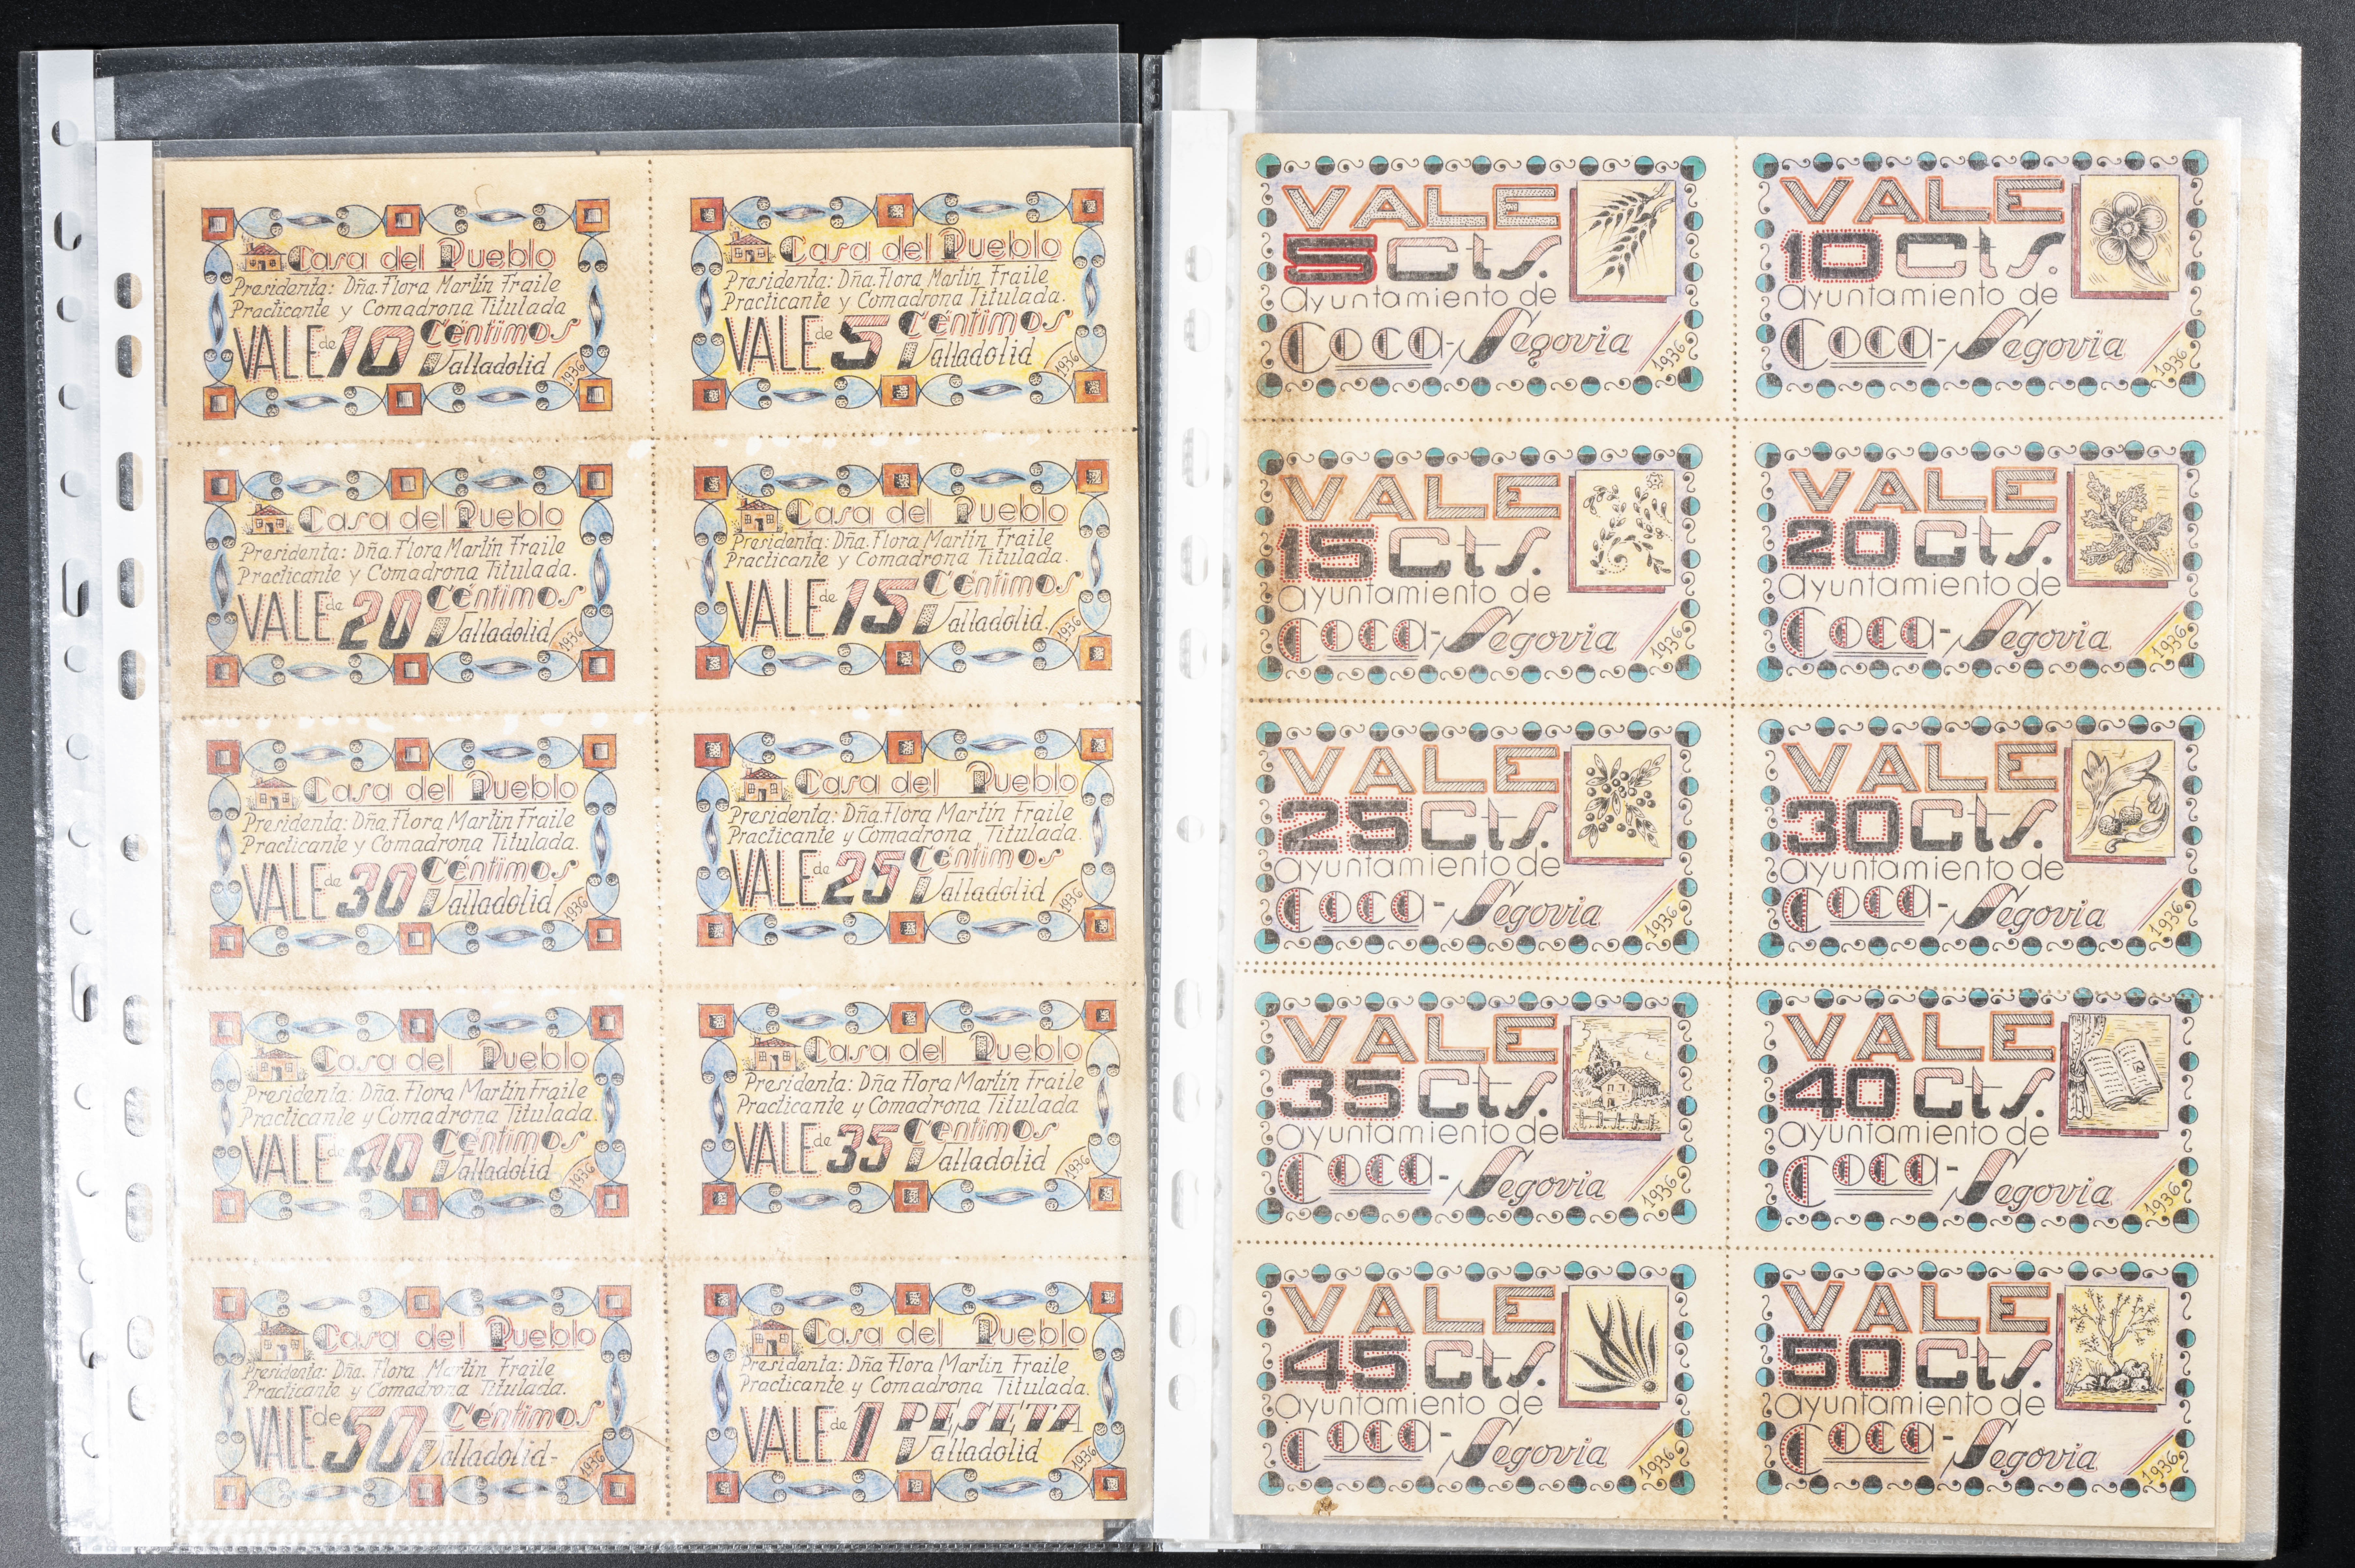 Casa del Pueblo
Presidenta: Dña. Flora Martín Fraile
Practicante y Comadrona Titulada
VALE de 10 Céntimos
Valladolid 1936
Casa del Pueblo
Presidenta: Dña. Flora Martín Fraile
Practicante y Comadrona Titulada.
VALE de 5 Céntimos
Valladolid 1936
Casa del Pueblo
Presidenta: Dña. Flora Martín Fraile
Practicante y Comadrona Titulada.
VALE de 20 Céntimos
Valladolid 1936
Casa del Pueblo
Presidenta: Dña. Flora Martín Fraile
Practicante y Comadrona Titulada.
VALE de 15 Céntimos
Valladolid. 1936
Casa del Pueblo
Presidenta: Dña. Flora Martín Fraile
Practicante y Comadrona Titulada.
VALE de 30 Céntimos
Valladolid 1936
Casa del Pueblo
Presidenta: Dña. Flora Martín Fraile
Practicante y Comadrona Titulada.
VALE de 25 Céntimos
Valladolid 1936
Casa del Pueblo
Presidenta: Dña. Flora Martín Fraile
Practicante y Comadrona Titulada.
VALE de 40 Céntimos
Valladolid 1936
Casa del Pueblo
Presidenta: Dña Flora Martín Fraile
Practicante y Comadrona Titulada
VALE de 35 Céntimos
Valladolid 1936
Casa del Pueblo
Presidenta: Dña. Flora Martín Fraile
Practicante y Comadrona Titulada.
VALE de 50 Céntimos
Valladolid- 1936
Casa del Pueblo
Presidenta: Dña Flora Martín Fraile
Practicante y Comadrona Titulada.
VALE de 1 PESETA
Valladolid 1936
VALE
5 Cts.
Ayuntamiento de
Coca-Segovia
1936
VALE
10 Cts.
Ayuntamiento de
Coca-Segovia
1936
VALE
15 Cts.
Ayuntamiento de
Coca-Segovia
1936
VALE
20 Cts.
Ayuntamiento de
Coca-Segovia
1936
VALE
25 Cts.
Ayuntamiento de
Coca-Segovia
1936
VALE
30 Cts.
Ayuntamiento de
Coca-Segovia
1936
VALE
35 Cts.
Ayuntamiento de
Coca-Segovia
1936
VALE
40 Cts.
Ayuntamiento de
Coca-Segovia
1936
VALE
45 Cts.
Ayuntamiento de
Coca-Segovia
1936
VALE
50 Cts.
Ayuntamiento de
Coca-Segovia
1936